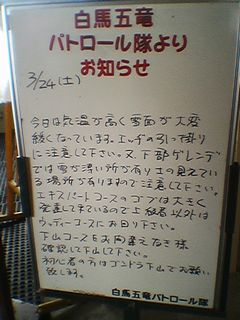 白馬五竜
パトロール隊より
お知らせ
3/24(土)
今日は気温が高く雪面が大変
緩くなっています。エッヂの引っ掛り
に注意して下さい。又、下部ゲレンデ
では雪が薄い所が有り土の見えてい
る場所が有りますので注意して下さい。
エキスパートコースのコブは大きく
発達して来ているので上級者以外は
ウッディーコースにお回り下さい。
下山コースをお間違えなき様
確認して下山して下さい。
初心者の方はゴンドラ下山でお願い
致します。
白馬五竜パトロール隊